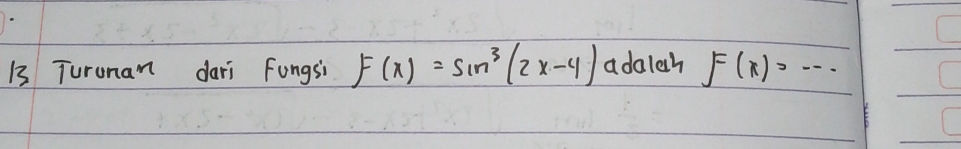 13 Turunan dari Fungsi F(x) = sin³(2x-4) adalah F(x) = ...